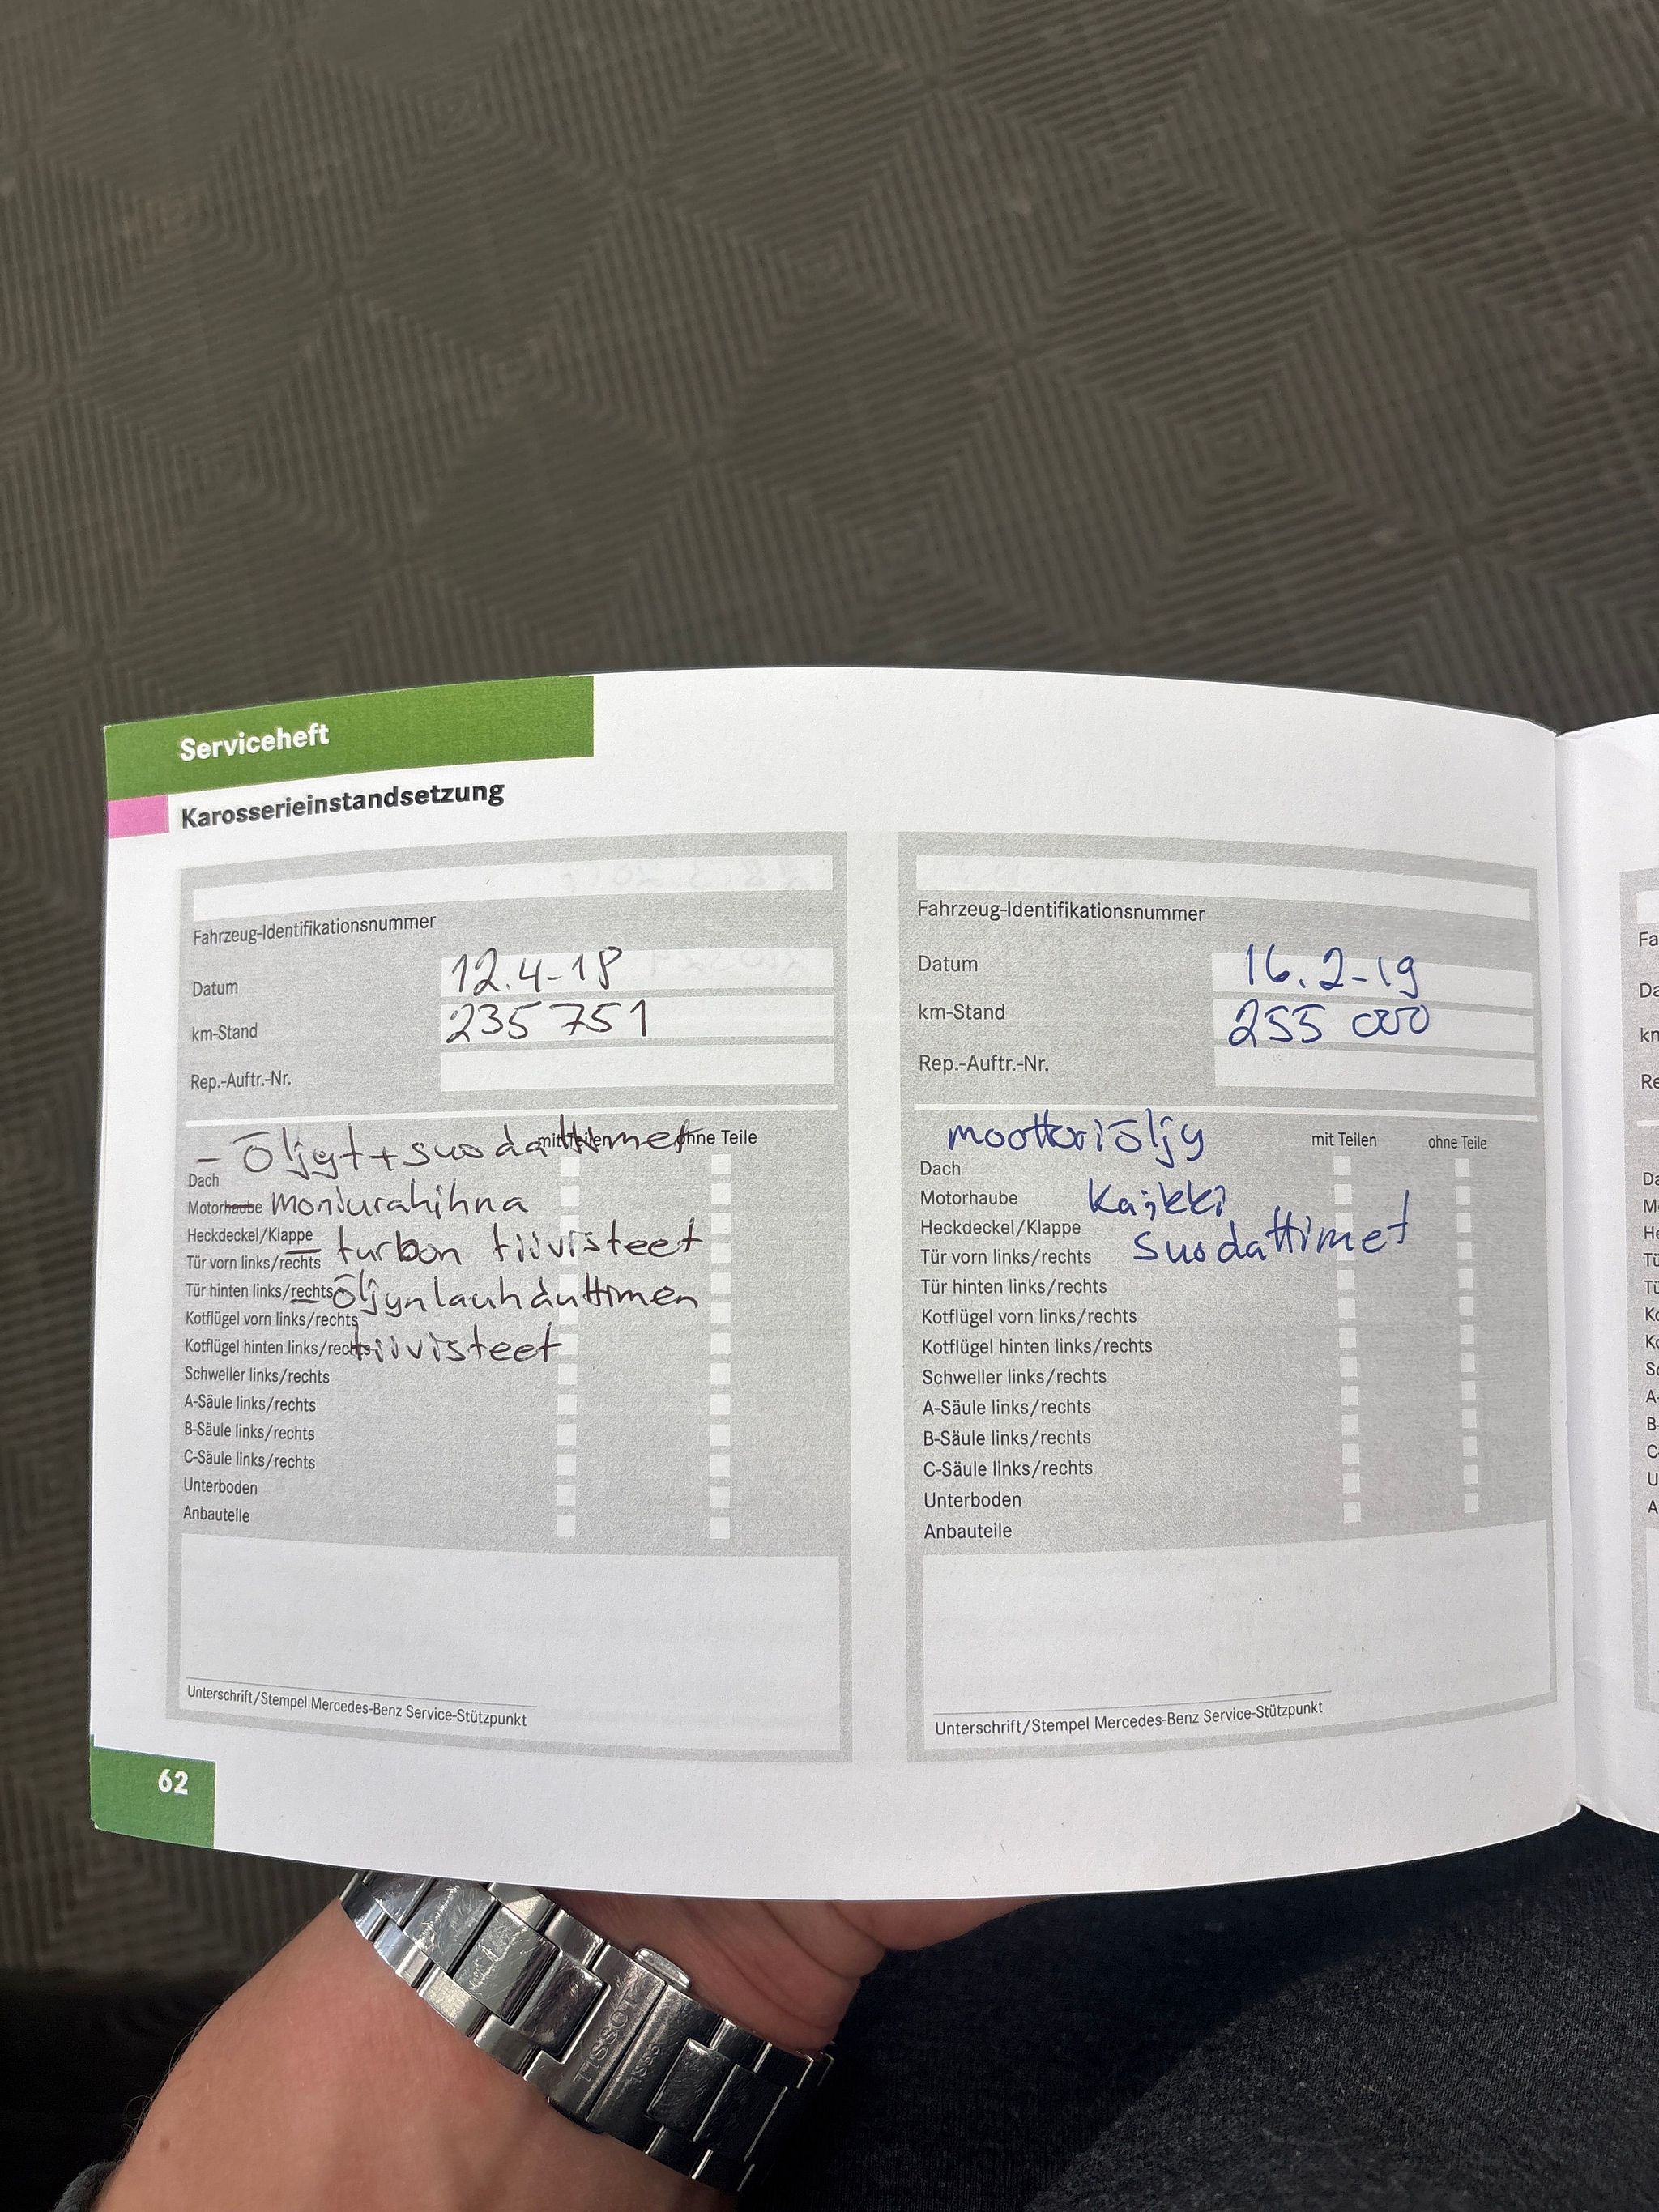 Serviceheft
Karosserieinstandsetzung
Fahrzeug-Identifikationsnummer
Datum 12.4-18
km-Stand 235 751
Rep.-Auftr.-Nr.
mit Teilen ohne Teile
- öljyt + suodattimet
Dach
Motorhaube moniurahihna
Heckdeckel/Klappe
- turbon tiivisteet
Tür vorn links/rechts
Tür hinten links/rechts - öljynlauhduttimen
Kotflügel vorn links/rechts
Kotflügel hinten links/rechts tiivisteet
Schweller links/rechts
A-Säule links/rechts
B-Säule links/rechts
C-Säule links/rechts
Unterboden
Anbauteile
Unterschrift/Stempel Mercedes-Benz Service-Stützpunkt
62
Fahrzeug-Identifikationsnummer
Datum 16.2-19
km-Stand 255 000
Rep.-Auftr.-Nr.
moottoriöljy mit Teilen ohne Teile
Dach
Motorhaube kaikki
Heckdeckel/Klappe suodattimet
Tür vorn links/rechts
Tür hinten links/rechts
Kotflügel vorn links/rechts
Kotflügel hinten links/rechts
Schweller links/rechts
A-Säule links/rechts
B-Säule links/rechts
C-Säule links/rechts
Unterboden
Anbauteile
Unterschrift/Stempel Mercedes-Benz Service-Stützpunkt
TISSOT
1853